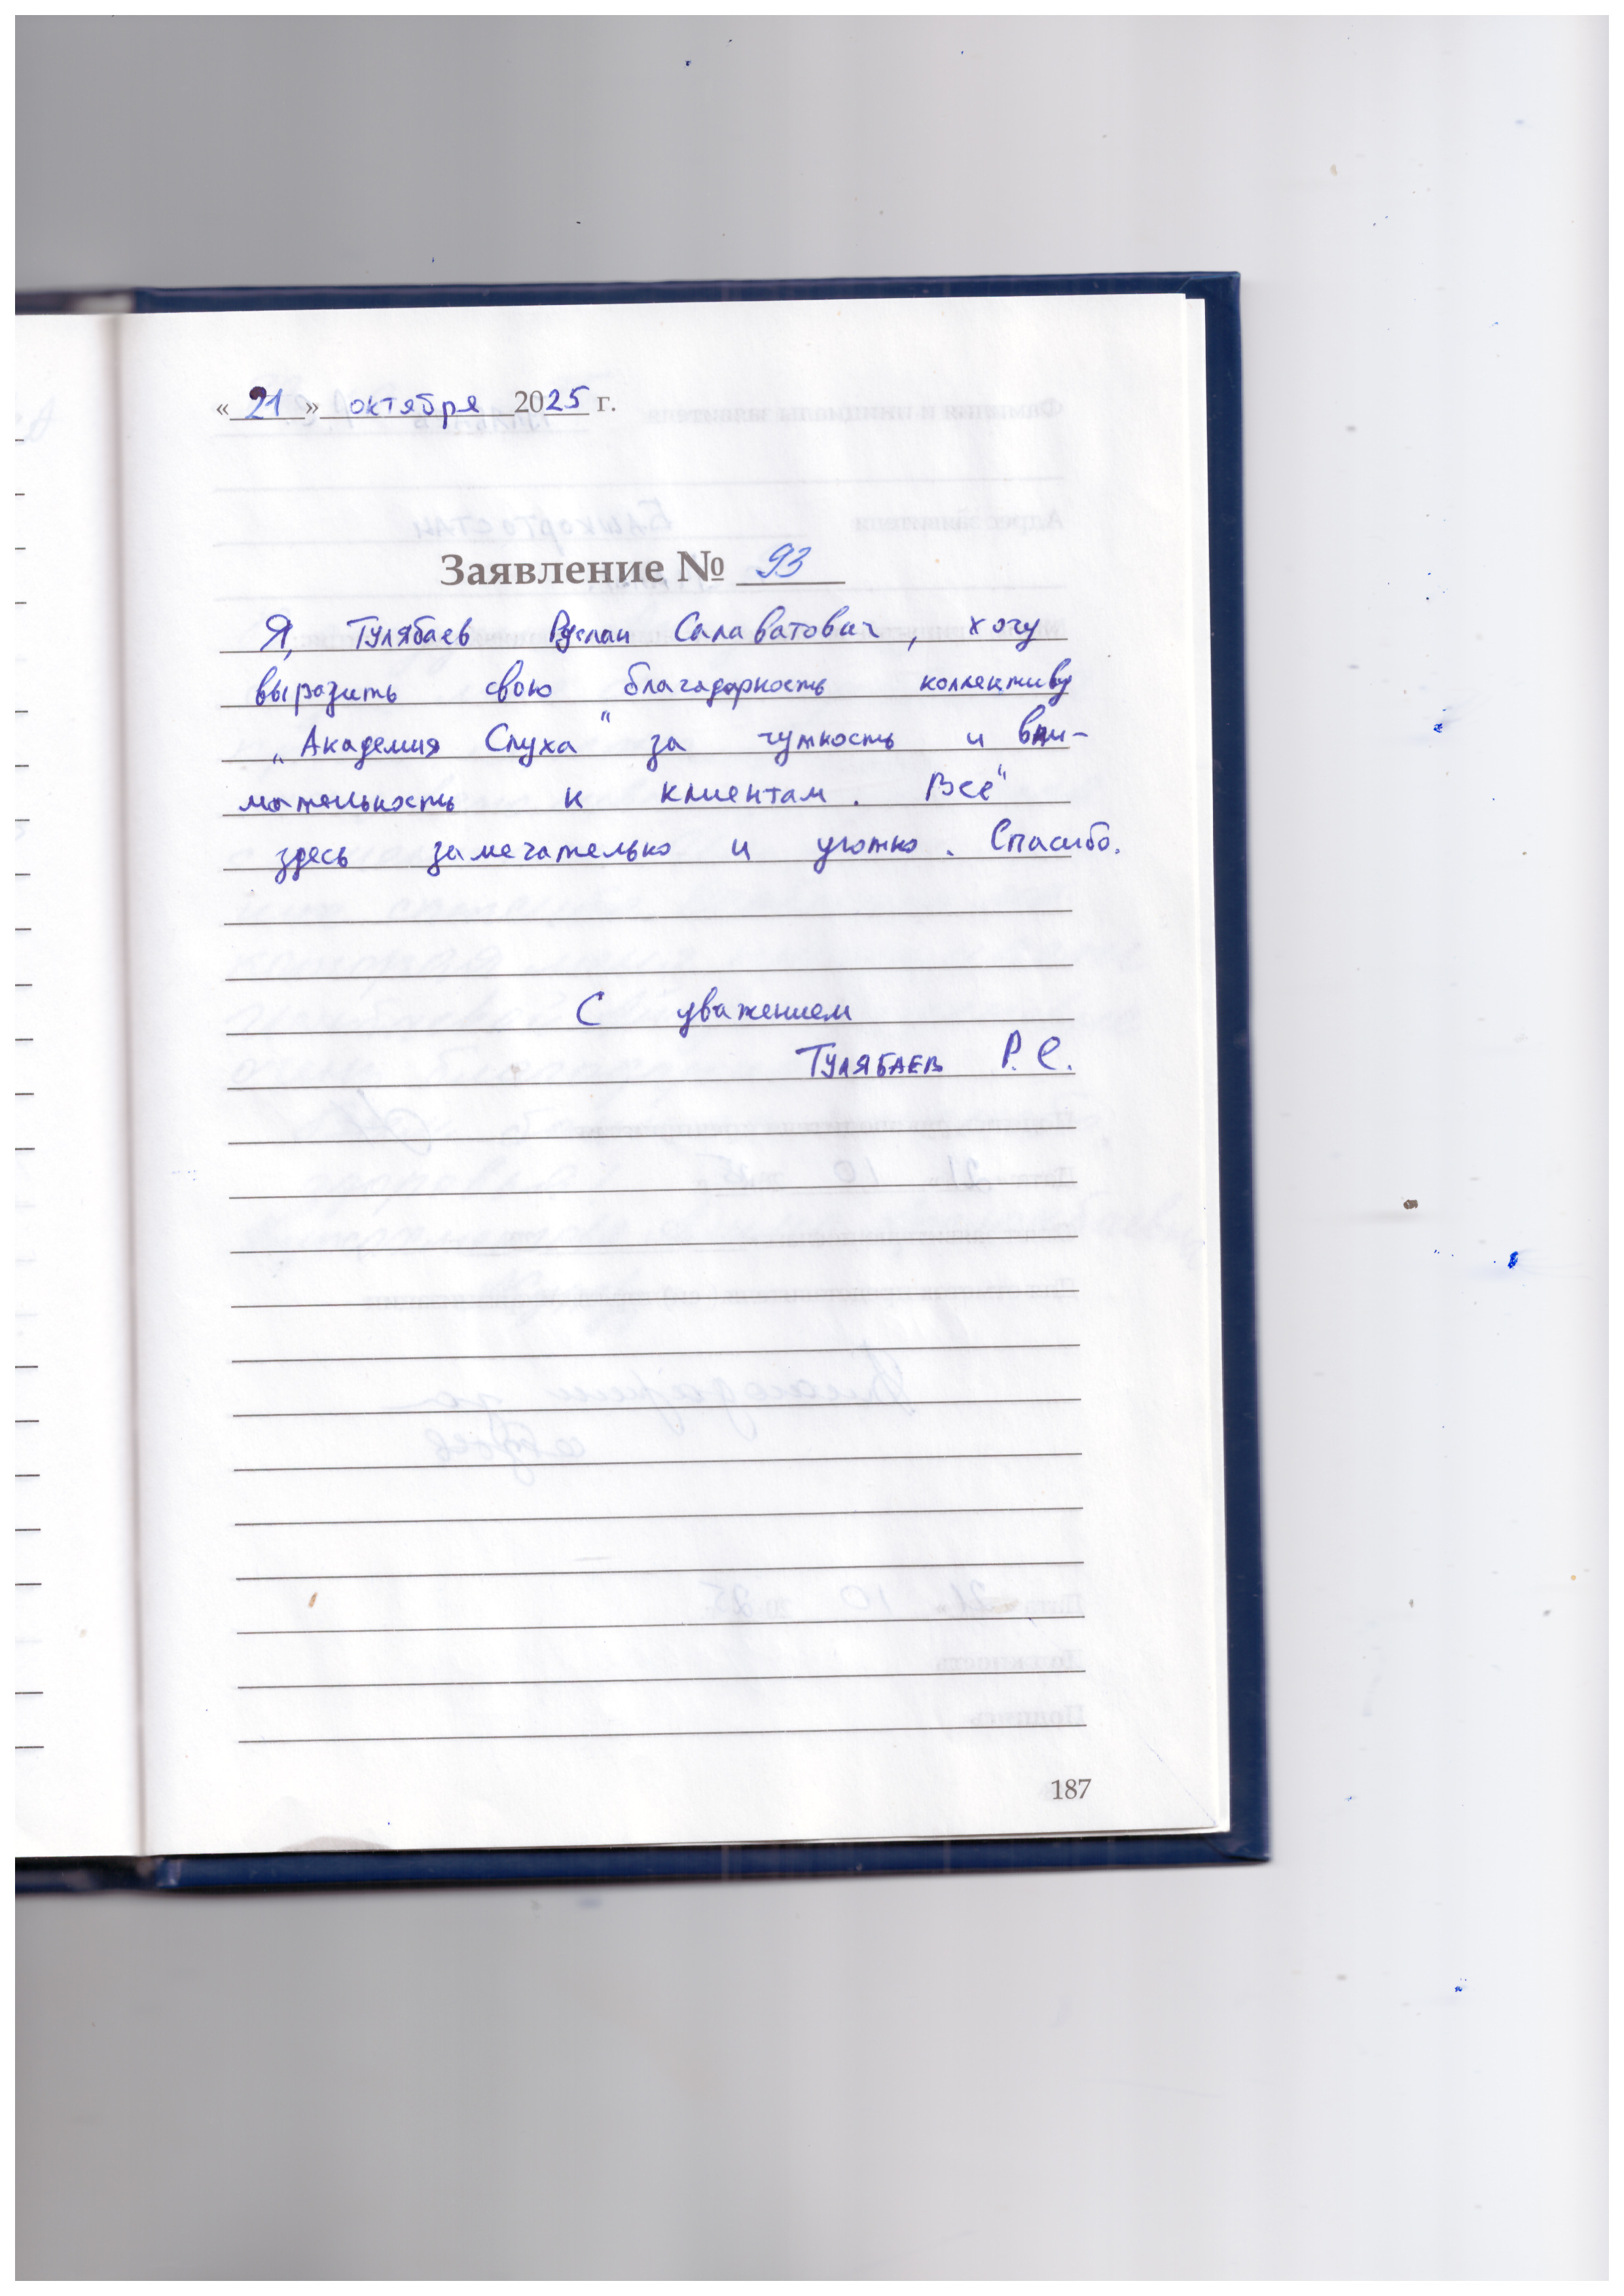 « 21 » октября 2025 г.
Заявление № 93
Я, Тулябаев Руслан Салаватович, хочу
выразить свою благодарность коллективу
„Академия Слуха" за чуткость и вни-
мательность к клиентам. Всё
здесь замечательно и уютно. Спасибо.
С уважением
ТУЛЯБАЕВ Р. С.
187